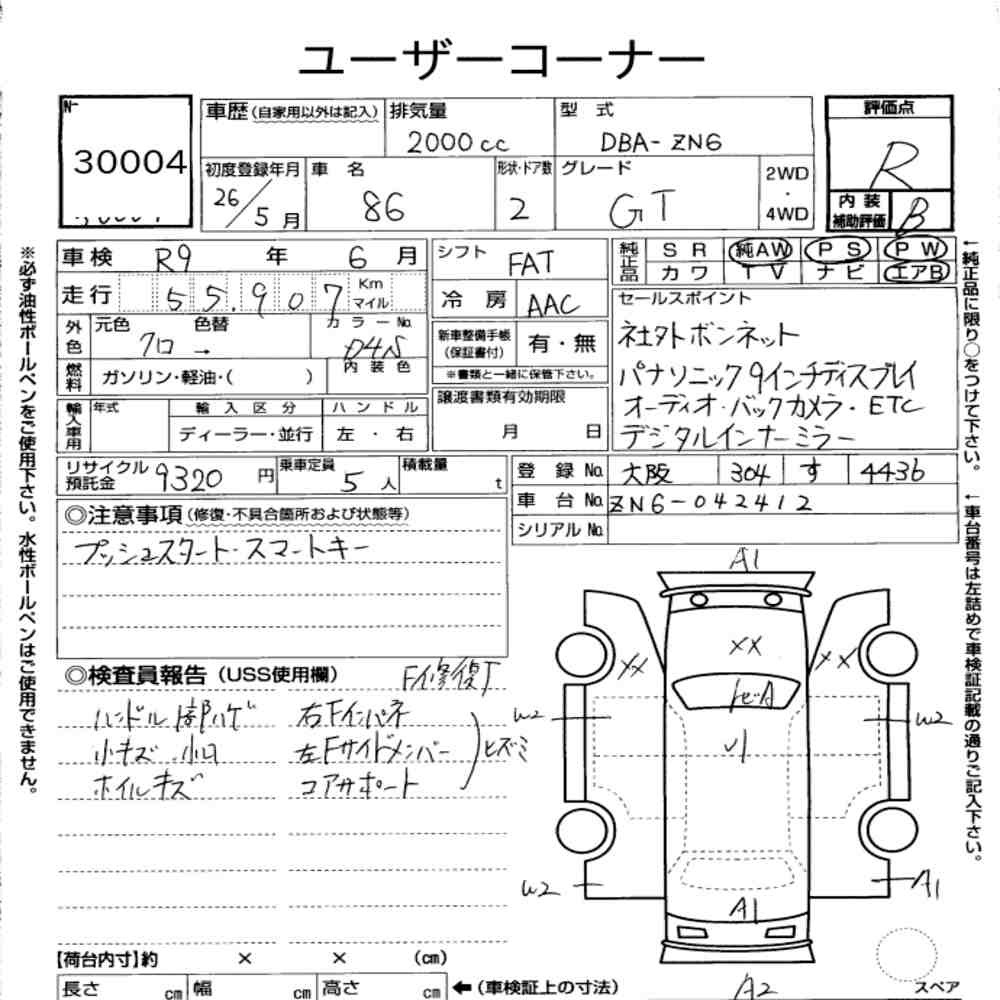 ユーザーコーナー
30004
車歴(自家用以外は記入)
排気量
2000cc
型式
DBA-ZN6
評価点
R
内装
補助評価
B
初度登録年月
26/5月
車名
86
形状・ドア数
2
グレード
GT
2WD
・
4WD
車検 R9年6月
走行 55.907 Km マイル
外色
元色 クロ →
色替
カラーNo.
D4S
内装色
燃料
ガソリン・軽油・( )
輸入車用
年式
輸入区分
ディーラー・並行
ハンドル
左・右
シフト FAT
冷房 AAC
新車整備手帳
(保証書付)
有・無
※書類と一緒に保管下さい。
譲渡書類有効期限
月 日
純正品
SR 純AW PS PW
カワ TV ナビ エアB
セールスポイント
社外ボンネット
パナソニック9インチディスプレイ
オーディオ・バックカメラ・ETC
デジタルインナーミラー
リサイクル
預託金
9320円
乗車定員
5人
積載量
t
登録No. 大阪 304 す 4436
車台No. ZN6-042412
シリアルNo.
◎注意事項(修復・不具合箇所および状態等)
プッシュスタート・スマートキー
◎検査員報告(USS使用欄)
F修復了
ハンドル部ハゲ 右Fインパネ
小キズ 小凹 左Fサイドメンバー ヒズミ
ホイルキズ コアサポート
A1
XX
XX
XX
W2
W2
W2
A1
A1
A2
スペア
【荷台内寸】約 × × (cm)
長さ cm 幅 cm 高さ cm ←(車検証上の寸法)
※必ず油性ボールペンをご使用下さい。水性ボールペンはご使用できません。
←純正品に限り○をつけて下さい。
←車台番号は左詰めで車検証記載の通りご記入下さい。